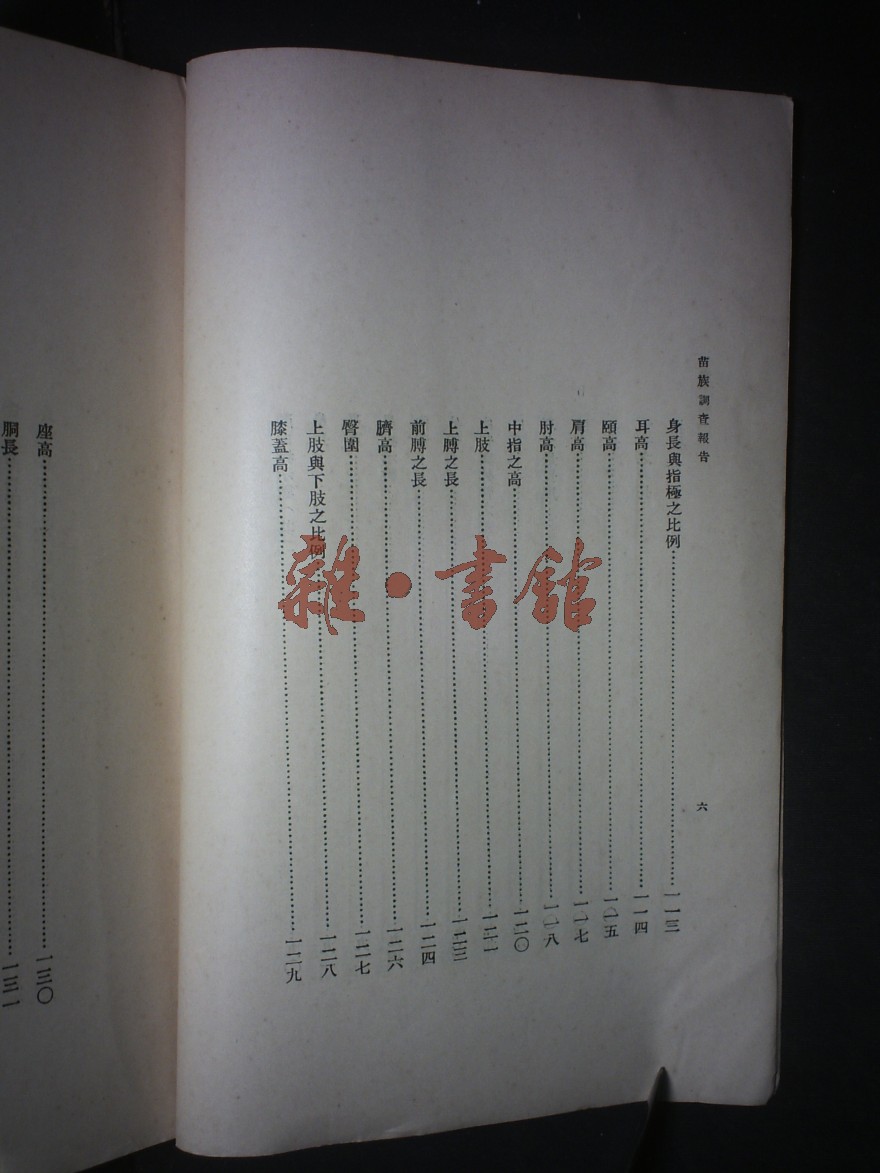 苗族調查報告
六
身長與指極之比例……一一三
耳高……一一四
頤高……一一五
肩高……一一七
肘高……一一八
中指之高……一二〇
上肢……一二一
上膊之長……一二三
前膊之長……一二四
臍高……一二六
臀圍……一二七
上肢與下肢之比例……一二八
膝蓋高……一二九
座高……一三〇
胴長……一三一
雜·書館